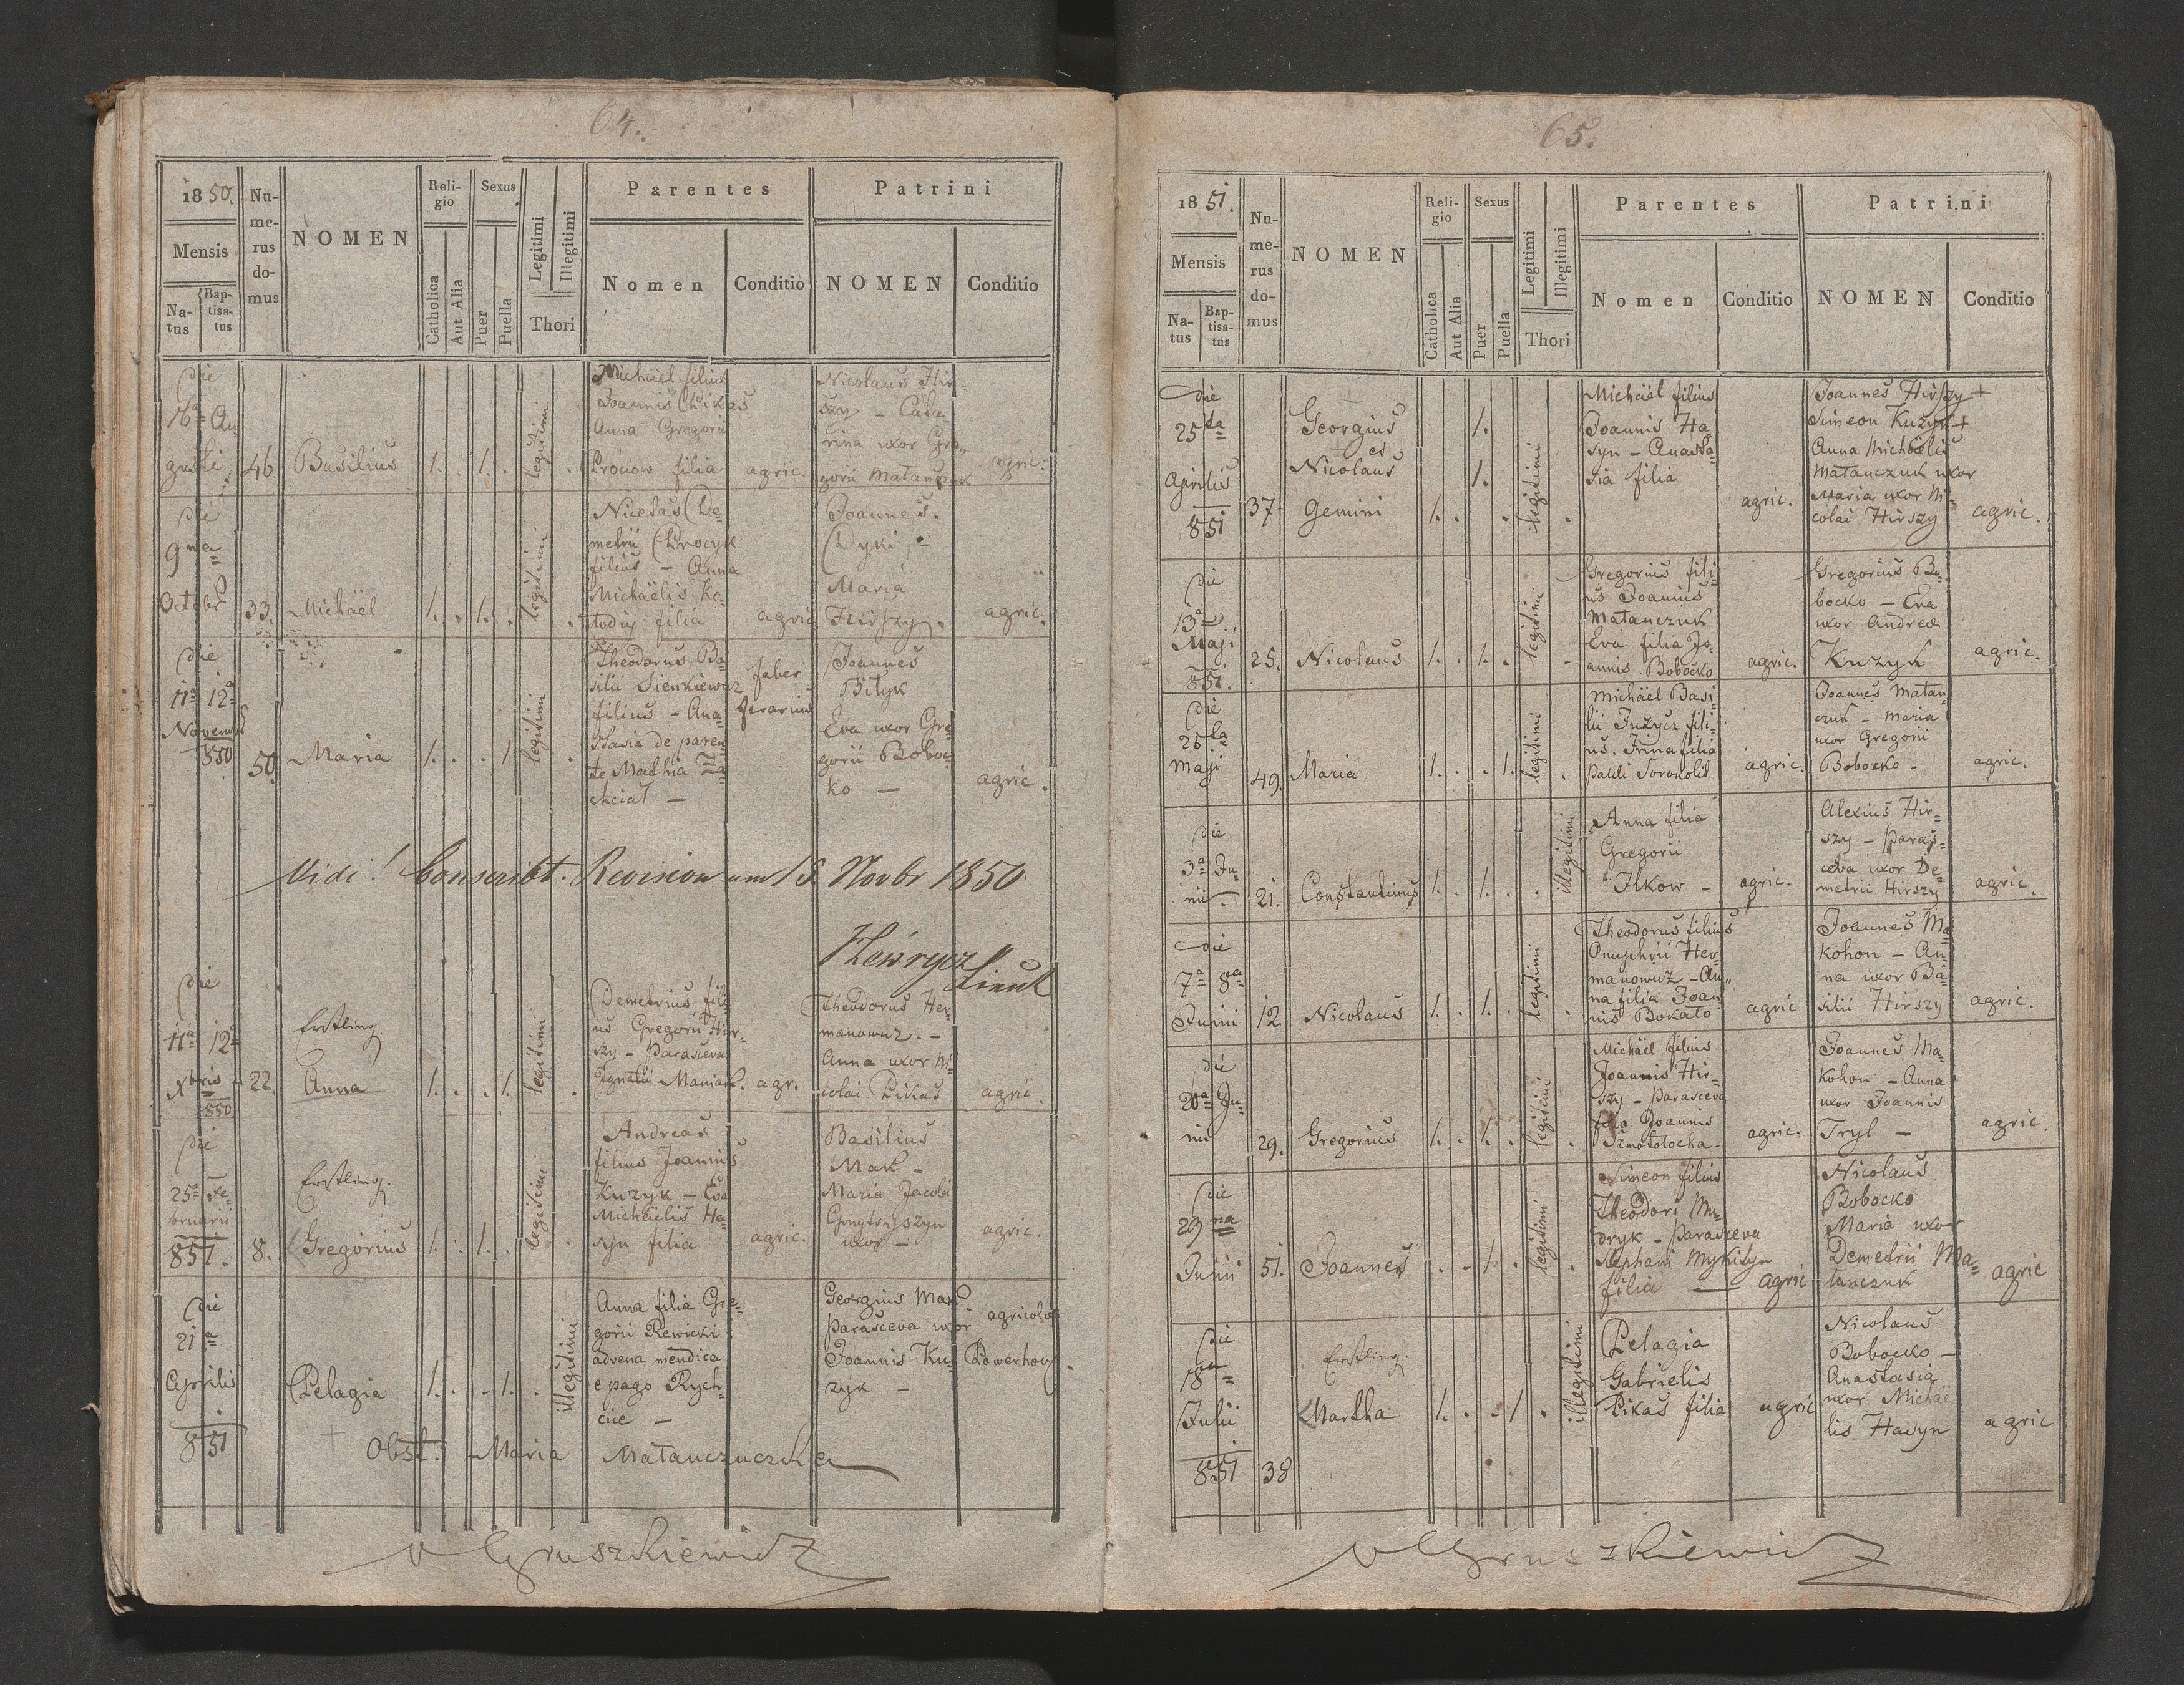 64.
1850.
Mensis
Na-
tus
Bap-
tisa-
tus
Nu-
me-
rus
do-
mus
NOMEN
Reli-
gio
Catholica
Aut Alia
Sexus
Puer
Puella
Legitimi
Illegitimi
Thori
Parentes
Nomen
Conditio
Patrini
NOMEN
Conditio
Die
16a Au
gusti
46
Basilius
1. . 1. .
legitimi
Michäel filius
Joannis Pikas
Anna Gregorii
Prociow filia
agric.
Nicolaus Hir-
szy - Cata
rina uxor Gre„
gorii Matanczuk
agric.
Die
9na
Octobr
33.
Michäel
1. . 1. .
legitimi
Nicetas De-
metrii Procyk
filius - Anna
Michäelis Ko-
lodiy filia
agric
Joannes
Dyki -
Maria
Hirszy.
agric.
Die
11a 12a
Novemb
850
50.
Maria
1. . . 1
legitimi
Theodorus Ba
silii Sienkiewicz
filius - Ana-
stasia de paren-
te Mathia Za
chciał -
faber
ferarius
Joannes
Bilyk
Eva uxor Gre-
gorii Boboc-
ko -
agric.
Vidi! Conscribt. Revision am 18 Novbr 1850
Lieut
Die
11a 12a
Xbris
850
22.
Erstling.
Anna
1. . . 1.
legitimi
Demetrius fili
us Gregorii Hir-
szy - Parasceva
Ignatii Maniak. agr.
Theodorus Her-
manowicz. -
Anna uxor Ni
colai Pikas
agric.
Die
25a Fe-
bruarii
851.
8.
Erstling.
Gregorius
1. . 1. .
legitimi
Andreas
filius Joannis
Kuzyk - Eva
Michäelis Ha-
syn filia
agric.
Basilius
Mak -
Maria Jacobi
Gmytryszyn
uxor -
agric.
Die
21a
Aprilis
851
Pelagia
1. . . 1. .
illegitimi
Anna filia Gre-
gorii Rewicki
advena mendica
e pago Rych-
cice -
Georgius Mak
Parasceva uxor
Joannis Ku-
zyk -
agricola
Obst: Maria Matanczuczka
Gruszkiewicz
65.
1851.
Mensis
Na-
tus
Bap-
tisa-
tus
Nu-
me-
rus
do-
mus
NOMEN
Reli-
gio
Catholica
Aut Alia
Sexus
Puer
Puella
Legitimi
Illegitimi
Thori
Parentes
Nomen
Conditio
Patrini
NOMEN
Conditio
Die
25ta
Aprilis
851
37
Georgius
et
Nicolaus
Gemini
1.
1.
1. . .
legitimi
Michäel filius
Joannis Ha
syn - Anasta-
sia filia
agric.
Joannes Hirszy +
Simeon Kuzyk +
Anna Michäelis
Matanczuk uxor
Maria uxor Ni-
colai Hirszy
agric.
Die
13a
Maji
851.
25.
Nicolaus
1. . 1. .
legitimi
Gregorius fili-
us Joannis
Matanczuk
Eva filia Jo-
annis Bobocko
agric.
Gregorius Bo-
bocko - Eva
uxor Andreæ
Kuzyk
agric.
Die
25ta
Maji
49.
Maria
1. . . 1.
legitimi
Michäel Basi-
lii Juzycz fili-
us. Irina filia
Pauli Sorokolit
agric.
Joannes Matan
czuk - Maria
uxor Gregorii
Bobocko -
agric.
Die
3a Ju-
nii
21.
Constantinus
1. . 1. . .
illegitimi
Anna filia
Gregorii
Ilkow -
agric.
Alexius Hir-
szy - Paras-
ceva uxor De-
metrii Hirszy
agric.
Die
7a 8a
Junii
12
Nicolaus
1. . 1. .
legitimi
Theodorus filius
Onuphrii Her-
manowicz - An„
na filia Joan-
nis Bokato
agric
Joannes Ma
kohon - An-
na uxor Ba-
silii Hirszy
agric.
Die
20a Ju-
nii
29.
Gregorius
1. . 1. .
legitimi
Michäel filius
Joannis Hir-
szy - Parasceva
filia Joannis
Szmotolocha -
agric.
Joannes Ma-
kohon - Anna
uxor Joannis
Tryl -
agric.
Die
29na
Junii
51.
Joannes
. . 1. .
legitimi
Simeon filius
Theodori Mu-
dryk - Parasceva
Stephani Mykityn
filia -
agric
Nicolaus
Bobocko
Maria uxor
Demetrii Ma-
tanczuk
agric
Die
18a
Julii
851
38
Erstling.
Martha
1. . . 1 .
illegitimi
Pelagia
Gabrielis
Pikas filia
agric
Nicolaus
Bobocko -
Anastasia
uxor Michäe
lis Hasyn
agric
Gruszkiewicz